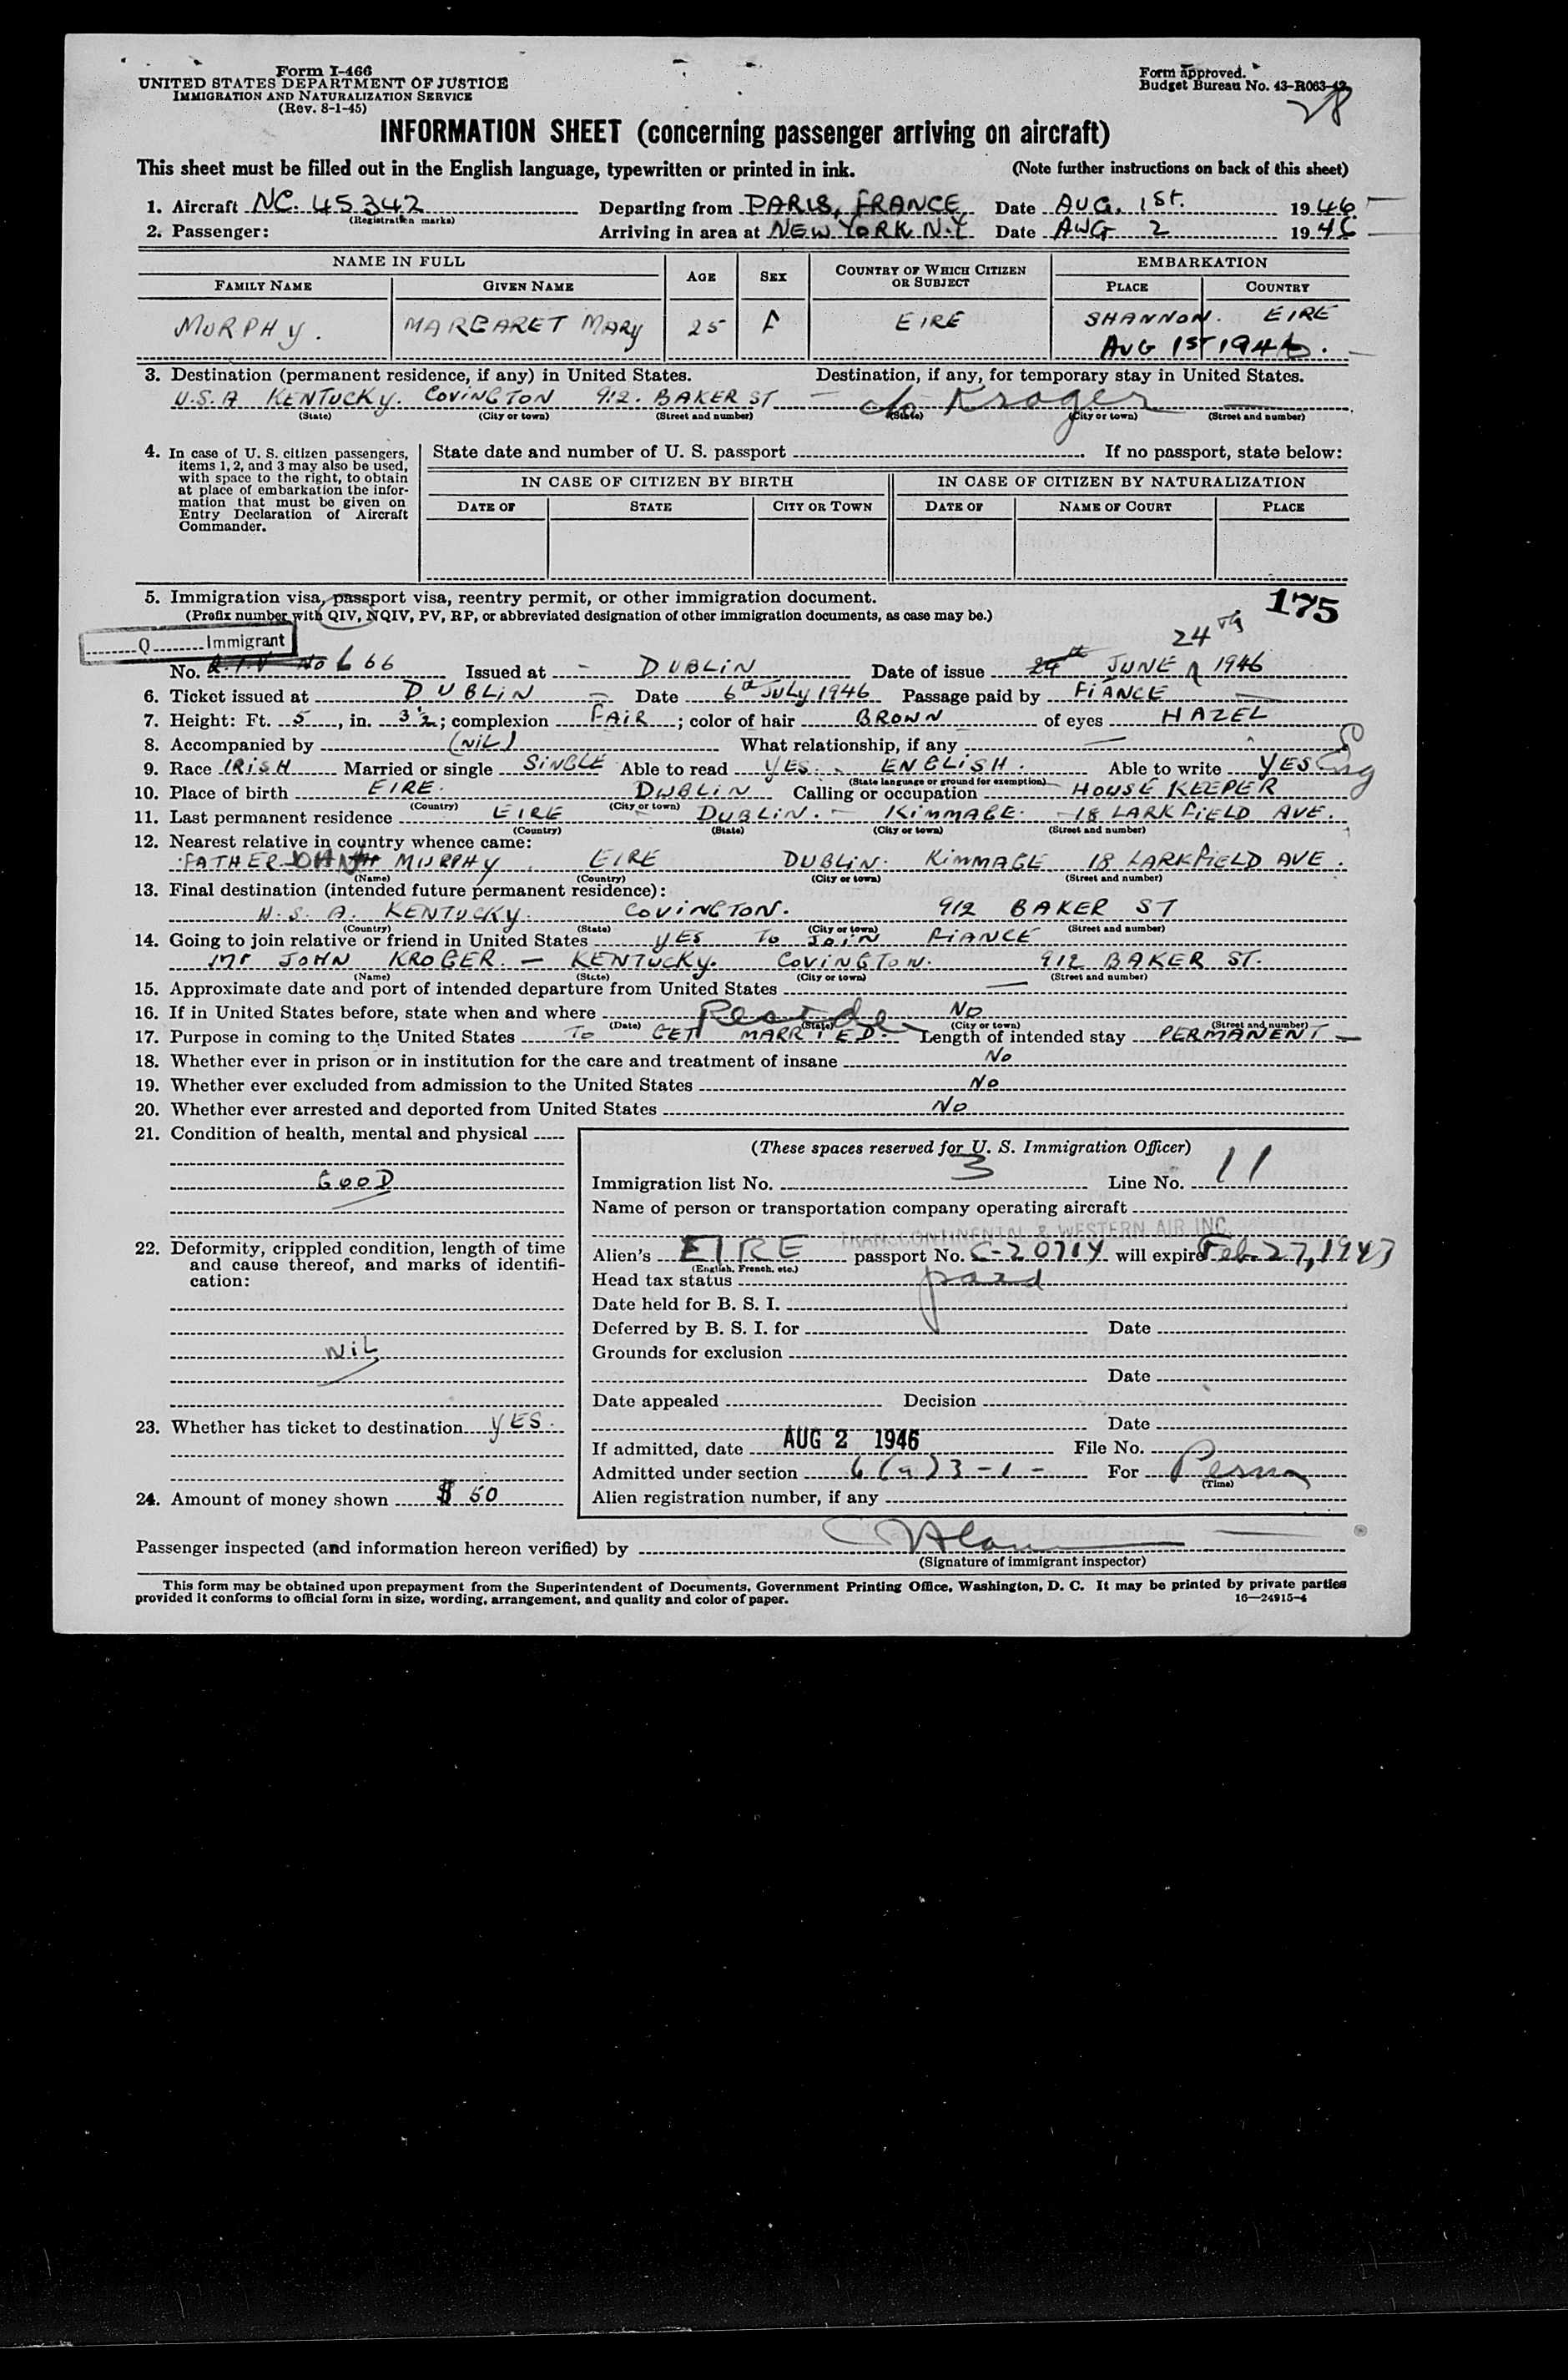 Form I-466
UNITED STATES DEPARTMENT OF JUSTICE
IMMIGRATION AND NATURALIZATION SERVICE
(Rev. 8-1-45)
Form approved.
Budget Bureau No. 43-R063-42.
28
INFORMATION SHEET (concerning passenger arriving on aircraft)
This sheet must be filled out in the English language, typewritten or printed in ink. (Note further instructions on back of this sheet)
1. Aircraft NC. 45342 Departing from PARIS, FRANCE Date AUG. 1st. 1946
(Registration marks)
2. Passenger: Arriving in area at NEW YORK N.Y Date AUG 2 1946
NAME IN FULL AGE SEX COUNTRY OF WHICH CITIZEN OR SUBJECT EMBARKATION
FAMILY NAME GIVEN NAME PLACE COUNTRY
MURPHY. MARGARET MARY 25 F EIRE SHANNON. EIRE
AUG 1ST 1946.
3. Destination (permanent residence, if any) in United States. Destination, if any, for temporary stay in United States.
U.S.A KENTUCKY. COVINGTON 912. BAKER ST — c/o Kroger —
(State) (City or town) (Street and number) (State) (City or town) (Street and number)
4. In case of U. S. citizen passengers, items 1, 2, and 3 may also be used, with space to the right, to obtain at place of embarkation the information that must be given on Entry Declaration of Aircraft Commander.
State date and number of U. S. passport . If no passport, state below:
IN CASE OF CITIZEN BY BIRTH IN CASE OF CITIZEN BY NATURALIZATION
DATE OF STATE CITY OR TOWN DATE OF NAME OF COURT PLACE
5. Immigration visa, passport visa, reentry permit, or other immigration document. 175
(Prefix number with QIV, NQIV, PV, RP, or abbreviated designation of other immigration documents, as case may be.)
Q Immigrant
24th
No. Q.I.V No 666 Issued at - DUBLIN Date of issue 24th JUNE 1946
6. Ticket issued at DUBLIN — Date 6th JULY 1946 Passage paid by FIANCE
7. Height: Ft. 5, in. 3½; complexion FAIR; color of hair BROWN of eyes HAZEL
8. Accompanied by (NIL) What relationship, if any —
9. Race IRISH Married or single SINGLE Able to read YES. ENGLISH. Able to write YES Eng
(State language or ground for exemption)
10. Place of birth EIRE. DUBLIN Calling or occupation HOUSE KEEPER
(Country) (City or town)
11. Last permanent residence EIRE - DUBLIN. - KIMMAGE. - 18 LARKFIELD AVE.
(Country) (State) (City or town) (Street and number)
12. Nearest relative in country whence came:
FATHER JOHN MURPHY EIRE DUBLIN. KIMMAGE 18 LARKFIELD AVE.
(Name) (Country) (City or town) (Street and number)
13. Final destination (intended future permanent residence):
U.S.A. KENTUCKY. COVINGTON. 912 BAKER ST
(Country) (State) (City or town) (Street and number)
14. Going to join relative or friend in United States YES TO JOIN FIANCE
Mr JOHN KROGER. — KENTUCKY. COVINGTON. 912 BAKER ST.
(Name) (State) (City or town) (Street and number)
15. Approximate date and port of intended departure from United States —
16. If in United States before, state when and where NO
(Date) (State) (City or town) (Street and number)
Reside
17. Purpose in coming to the United States TO GET MARRIED. Length of intended stay PERMANENT —
18. Whether ever in prison or in institution for the care and treatment of insane No
19. Whether ever excluded from admission to the United States No
20. Whether ever arrested and deported from United States No
21. Condition of health, mental and physical
GOOD
22. Deformity, crippled condition, length of time and cause thereof, and marks of identification:
NIL
23. Whether has ticket to destination YES.
24. Amount of money shown $ 50
(These spaces reserved for U. S. Immigration Officer)
Immigration list No. 3 Line No. 11
Name of person or transportation company operating aircraft
TRANSCONTINENTAL & WESTERN AIR INC
Alien's EIRE passport No. C-20714 will expire Feb. 27, 1947
(English, French, etc.)
Head tax status paid
Date held for B. S. I.
Deferred by B. S. I. for Date
Grounds for exclusion
Date
Date appealed Decision
Date
If admitted, date AUG 2 1946 File No.
Admitted under section 6(a)3-1- For Perm
(Time)
Alien registration number, if any
Passenger inspected (and information hereon verified) by
(Signature of immigrant inspector)
This form may be obtained upon prepayment from the Superintendent of Documents, Government Printing Office, Washington, D. C. It may be printed by private parties
provided it conforms to official form in size, wording, arrangement, and quality and color of paper. 16—24915-4